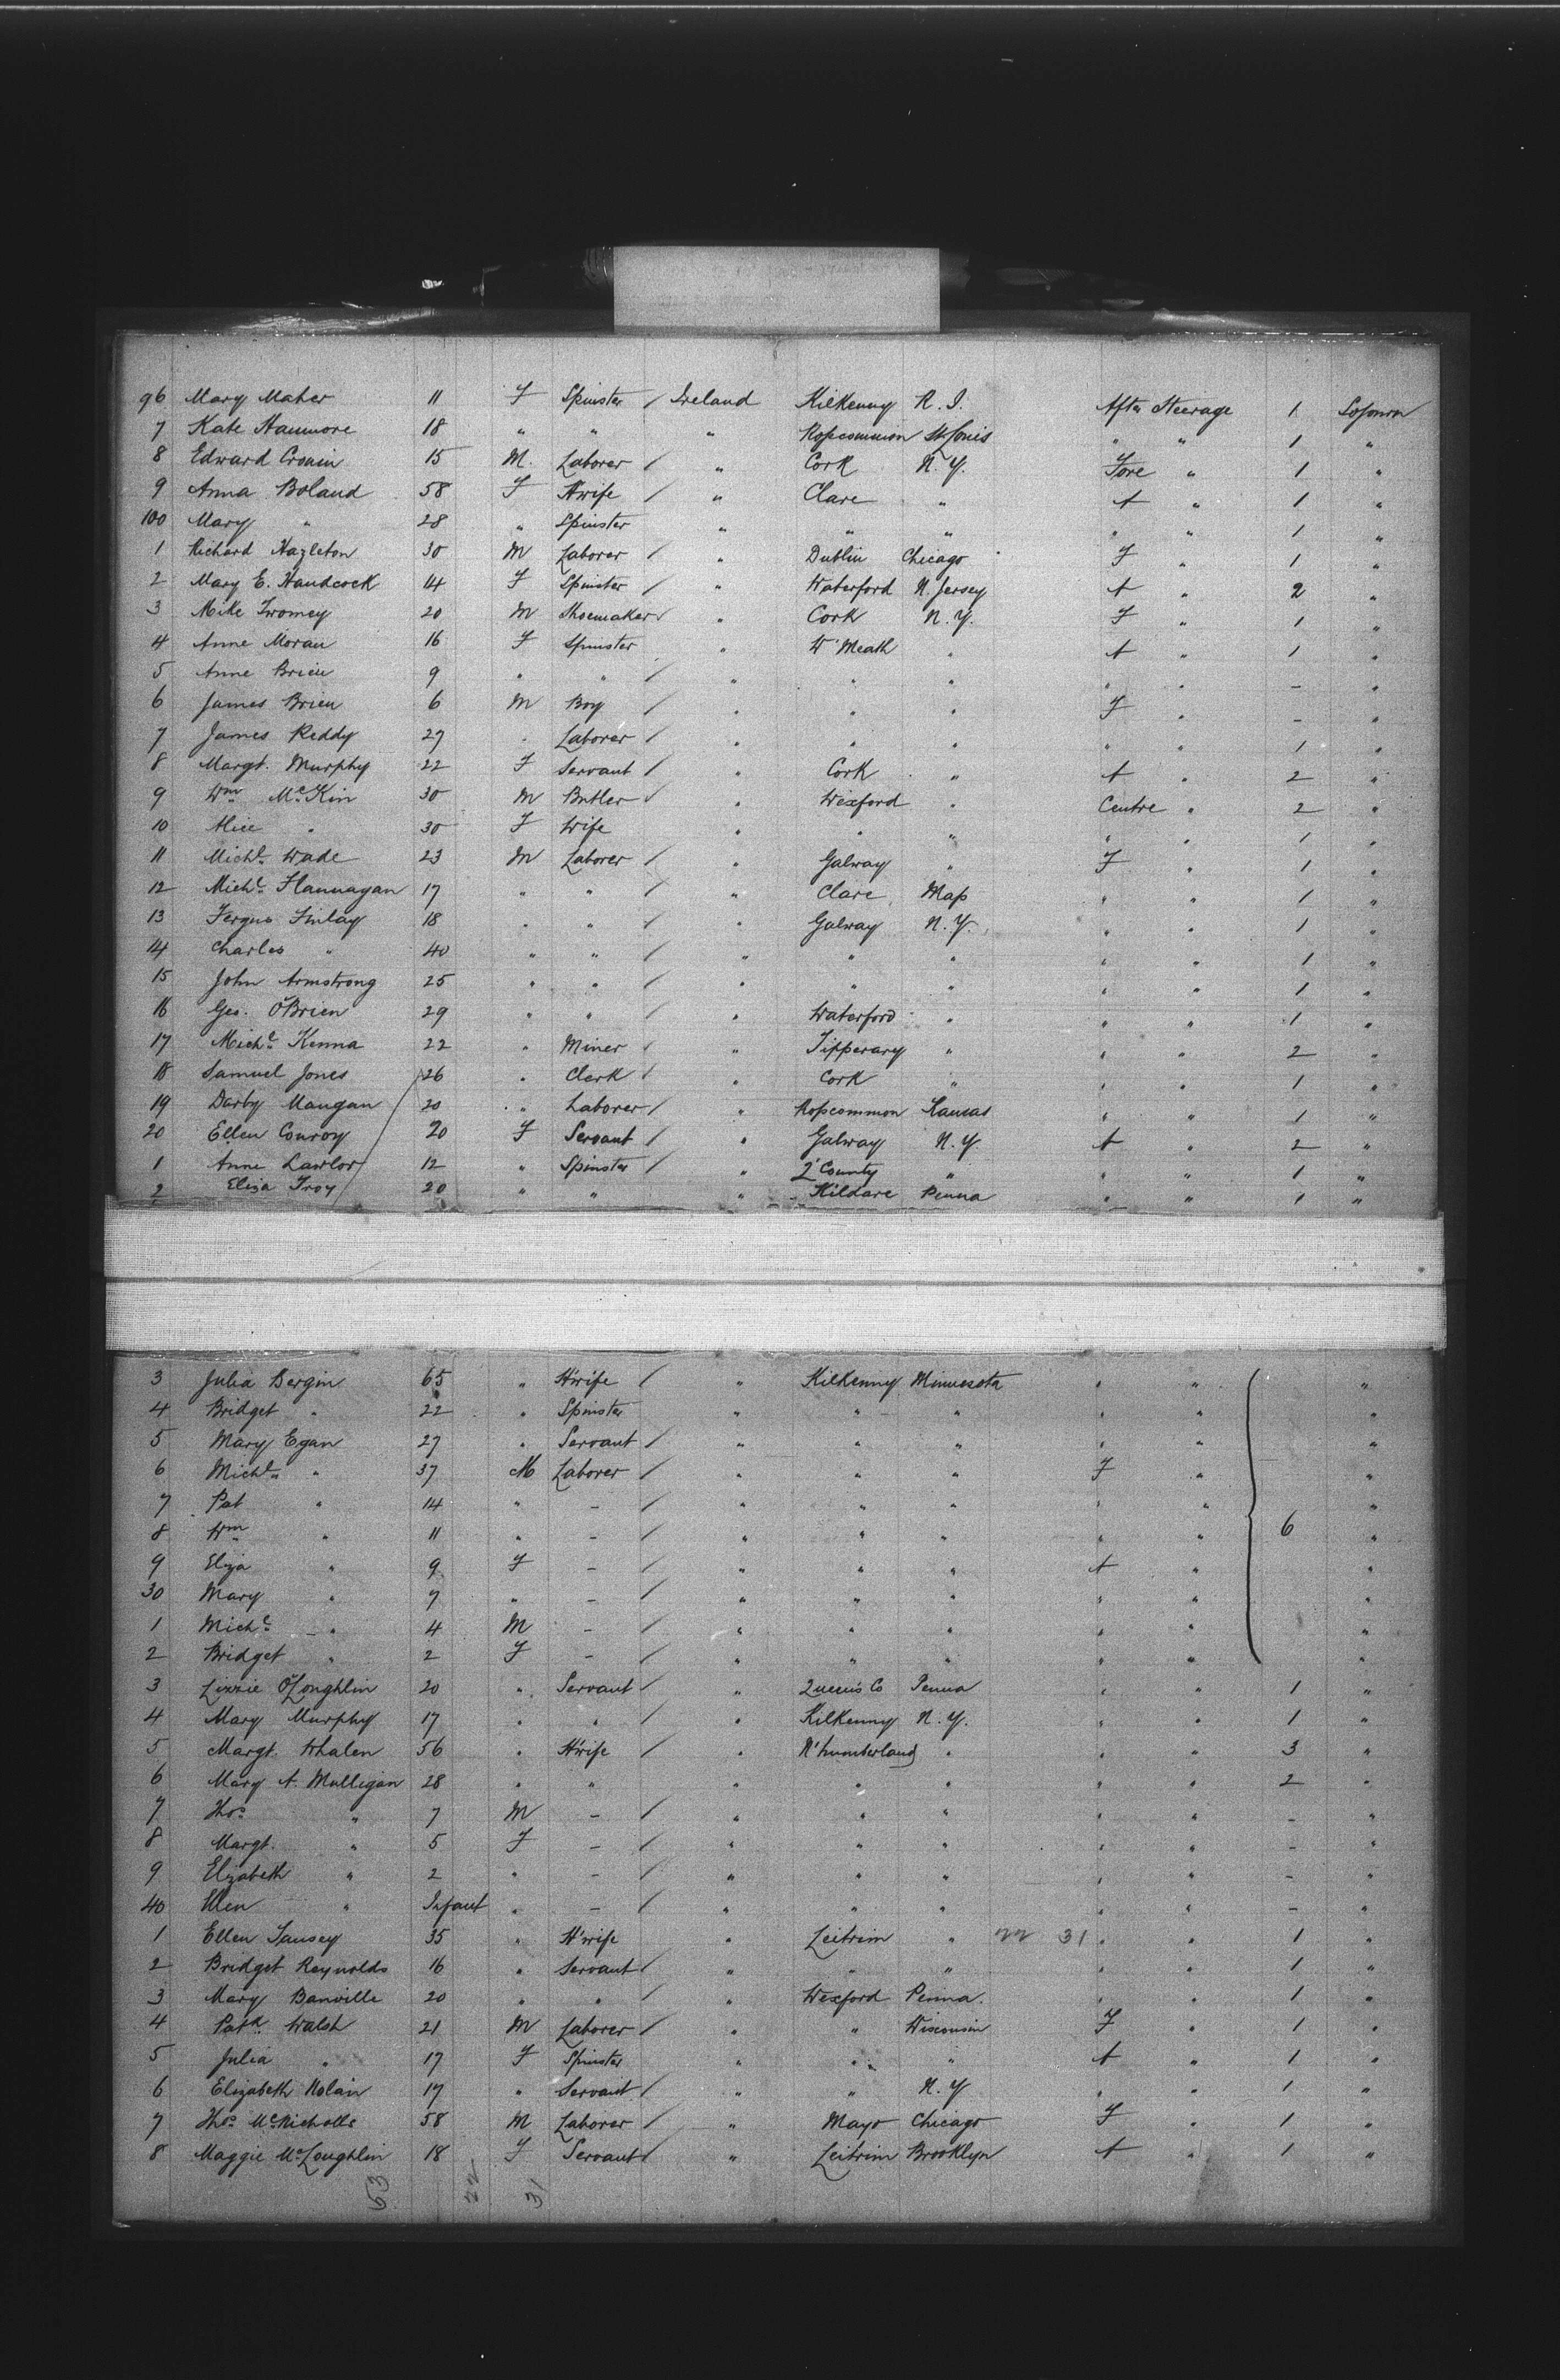 96 Mary Maher 11 F Spinster / Ireland Kilkenny R. I. After Steerage 1 Sojourn
7 Kate Hanmore 18 " " " Roscommon St Louis " " 1 "
8 Edward Cronin 15 M. Laborer / " Cork N. Y. Fore " 1 "
9 Anna Boland 58 F H'wife / " Clare " A " 1 "
100 Mary " 28 " Spinster " " " " " 1 "
1 Richard Hazleton 30 M Laborer / " Dublin Chicago F " 1 "
2 Mary E. Handcock 14 F Spinster / " Waterford N. Jersey A " 2 "
3 Mike Twomey 20 M Shoemaker / " Cork N. Y. F " 1 "
4 Anne Moran 16 F Spinster " W'Meath " A " 1 "
5 Anne Brien 9 " " / " " " " " – "
6 James Brien 6 M Boy / " " " F " – "
7 James Reddy 27 " Laborer / " " " " " 1 "
8 Margt. Murphy 22 F Servant / " Cork " A " 2 "
9 Wm McKin 30 M Butler / " Wexford " Centre " 2 "
10 Alice " 30 F Wife " " " " " 1 "
11 Michl Wade 23 M Laborer / " Galway " F " 1 "
12 Michl Flannagan 17 " " / " Clare Mass " " 1 "
13 Fergus Finlay 18 " " / " Galway N. Y. " " 1 "
14 Charles " 40 " " / " " " " " 1 "
15 John Armstrong 25 " " / " " " " " 1 "
16 Geo. O'Brien 29 " " / " Waterford " " " 1 "
17 Michl Kenna 22 " Miner / " Tipperary " " " 2 "
18 Samuel Jones 26 " Clerk / " Cork " " " 1 "
19 Darby Mangan 20 " Laborer / " Roscommon Kansas " " 1 "
20 Ellen Conroy 20 F Servant / " Galway N. Y. A " 2 "
1 Anne Lawlor 12 " Spinster / " Q' County " " " 1 "
2 Eliza Troy 20 " " " Kildare Penna " " 1 "
3 Julia Bergin 65 " H'wife / " Kilkenny Minnesota " " "
4 Bridget " 22 " Spinster " " " " " "
5 Mary Egan 27 " Servant / " " " " " "
6 Michl " 37 M Laborer / " " " F " "
7 Pat " 14 " – / " " " " " "
8 Wm " 11 " – / " " " " " 6 "
9 Eliza " 9 F – / " " " A " "
30 Mary " 7 " – / " " " " " "
1 Michl " 4 M – / " " " " " "
2 Bridget " 2 F – / " " " " " "
3 Lizzie O'Loughlin 20 " Servant / " Queens Co Penna " " 1 "
4 Mary Murphy 17 " " / " Kilkenny N. Y. " " 1 "
5 Margt. Whalen 56 " H'wife / " N'humberland " " " 3 "
6 Mary A. Mulligan 28 " " " " " " " 2 "
7 Thos " 7 M – / " " " " " – "
8 Margt. " 5 F – / " " " " " – "
9 Elizabeth " 2 " – / " " " " " – "
40 Ellen " Infant " – / " " " " " – "
1 Ellen Tansey 35 " H'wife " Leitrim " 22 31 " " 1 "
2 Bridget Reynolds 16 " Servant / " " " " " 1 "
3 Mary Banville 20 " " / " Wexford Penna. " " 1 "
4 Patk Walsh 21 M Laborer / " " Wisconsin F " 1 "
5 Julia " 17 F Spinster " " " A " 1 "
6 Elizabeth Nolan 17 " Servant / " " N. Y " " 1 "
7 Thos McNicholls 58 M Laborer / " Mayo Chicago F " 1 "
8 Maggie McLoughlin 18 F Servant / " Leitrim Brooklyn A " 1 "
53 22 31